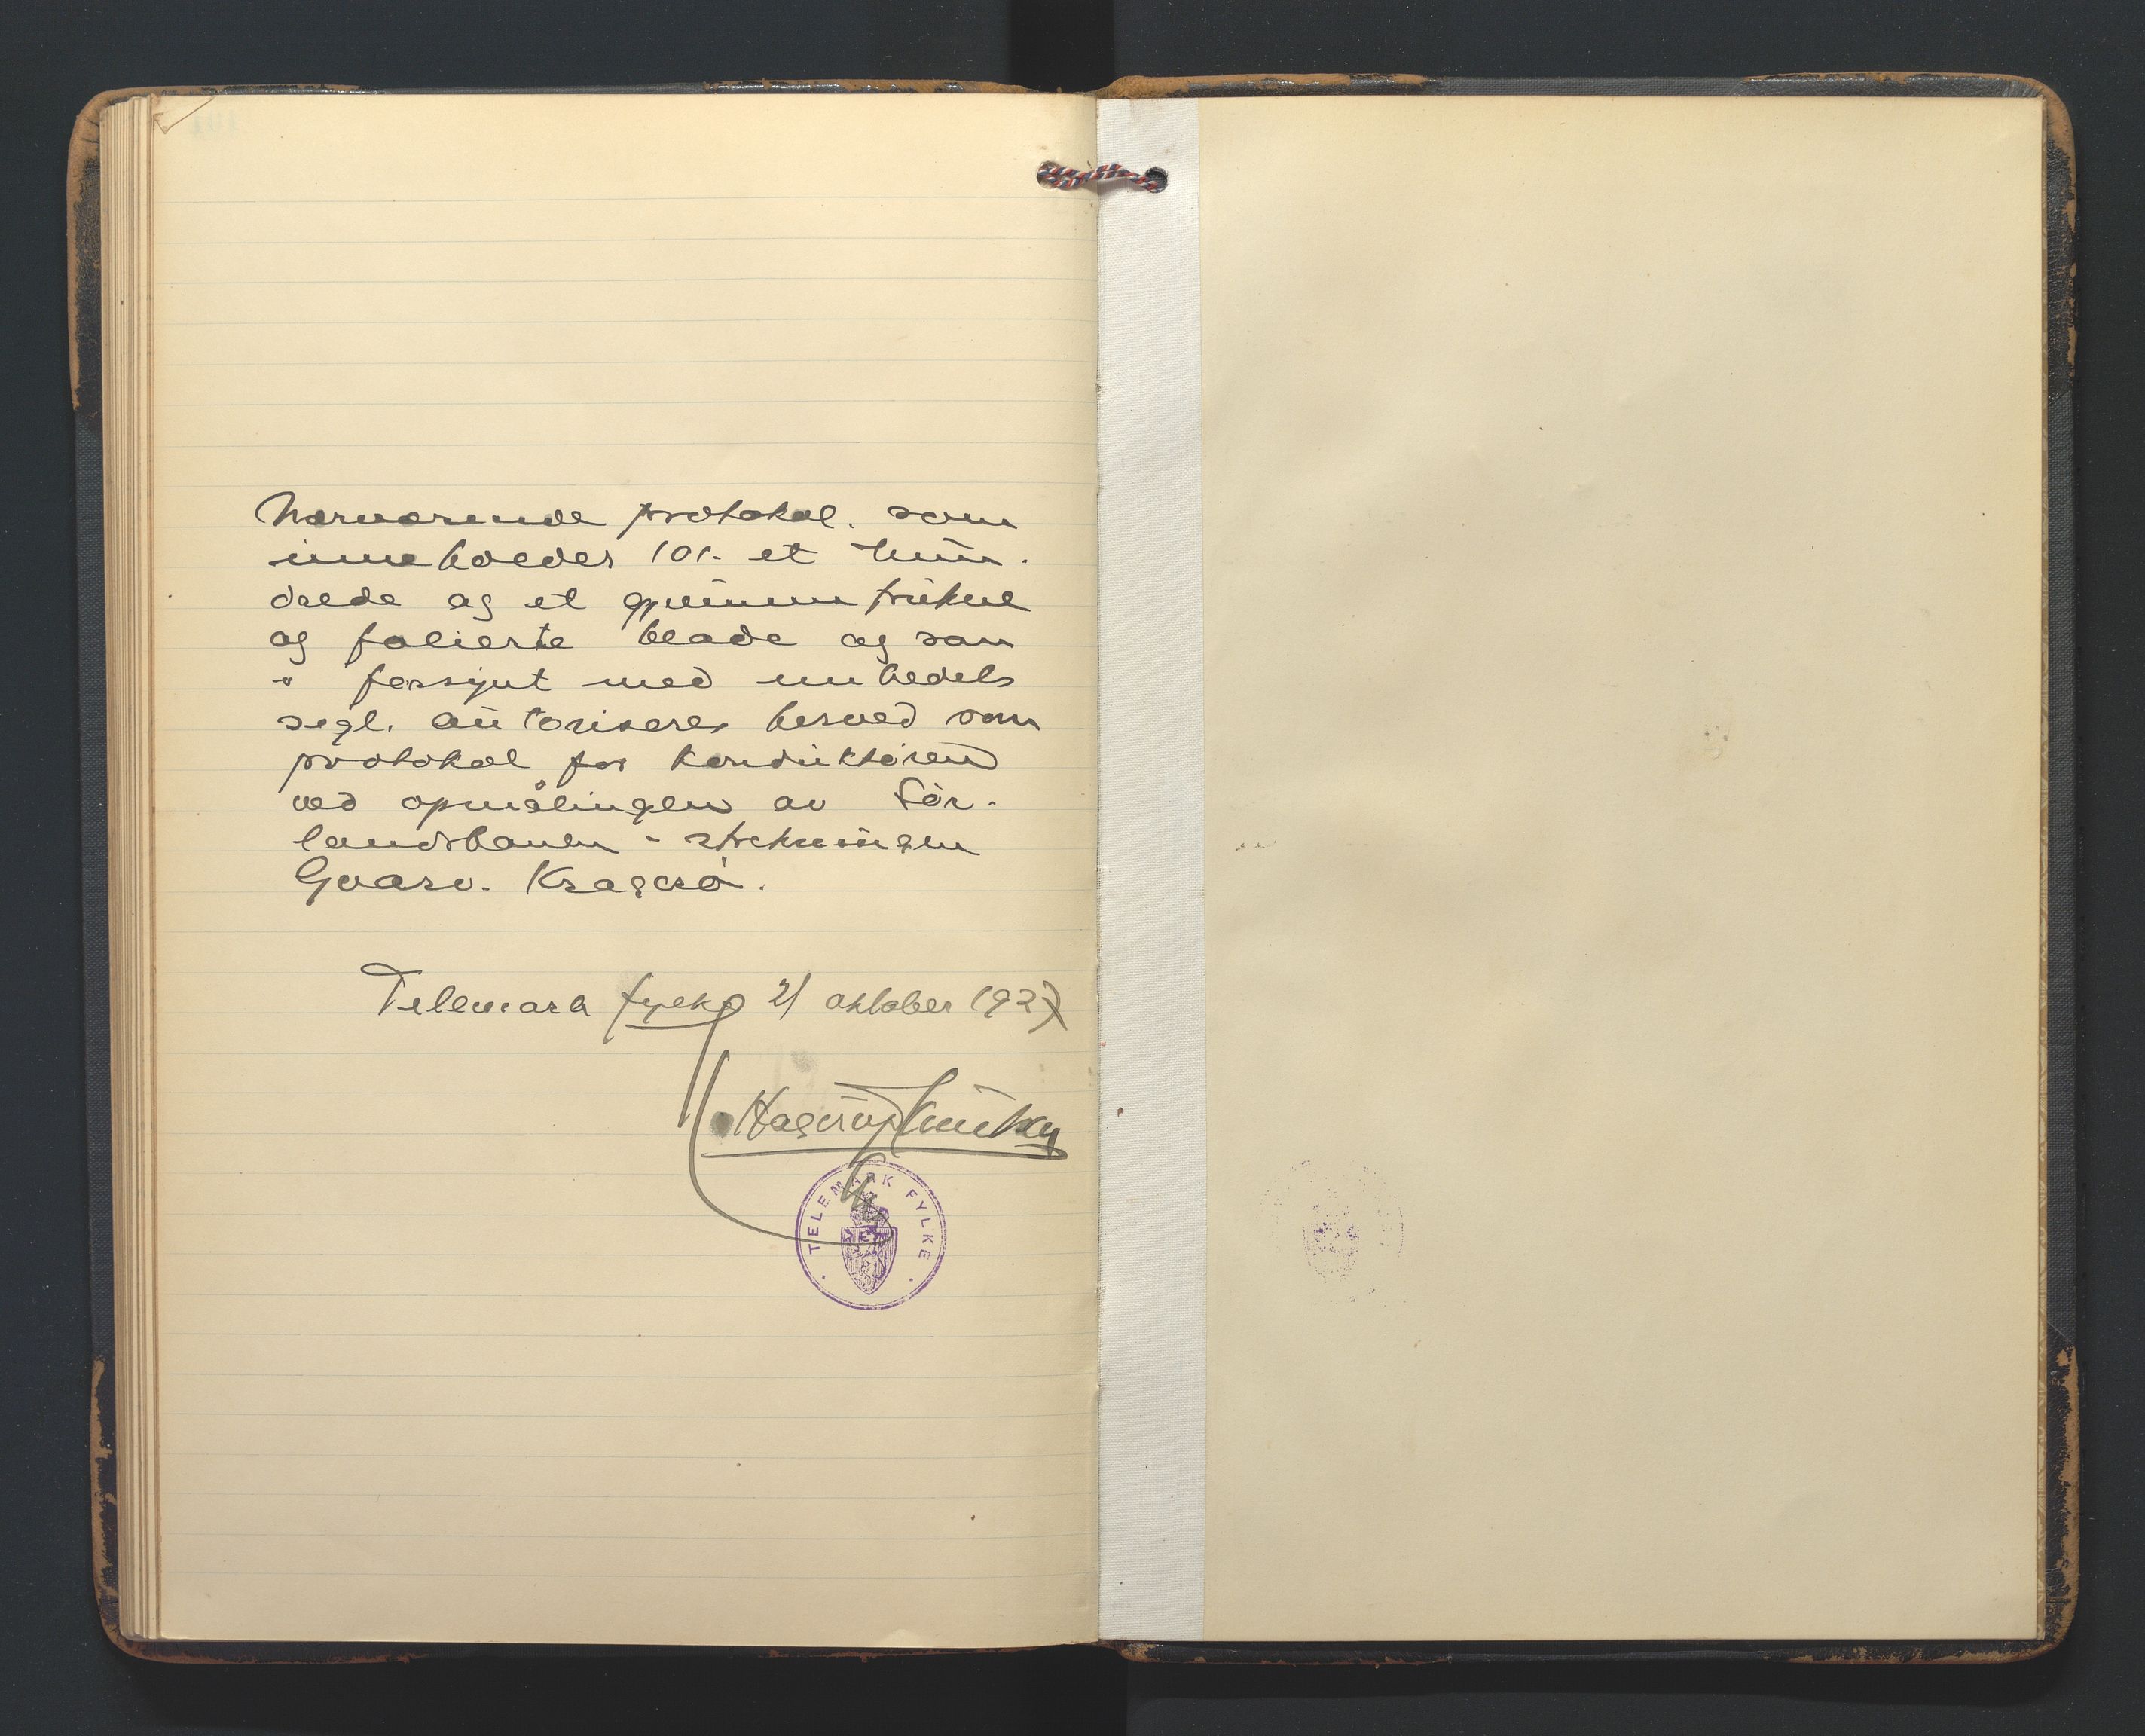 Nærværende protokol, som
inneholder 101 - et hun-
drede og et gjennemtrukne
og folierte blade og som
er forsynt med embedets
segl, autoriseres herved som
protokol for konduktøren
ved opmålingen av Sør-
landsbanen - strekningen
Gvarv - Kragerø.
Telemark fylke 21 oktober 1927
Hagerup
TELEMARK FYLKE